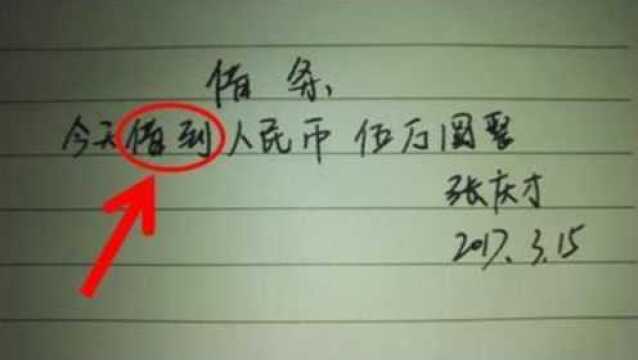 借条,
今天借到人民币伍万圆整
张庆才
2017.3.15